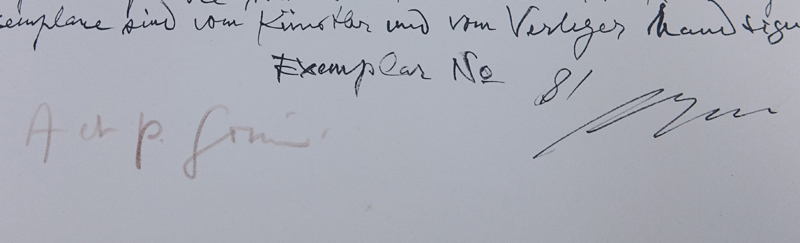 emplare sind vom Künstler und vom Verleger handsign
Exemplar No 81
A et p.